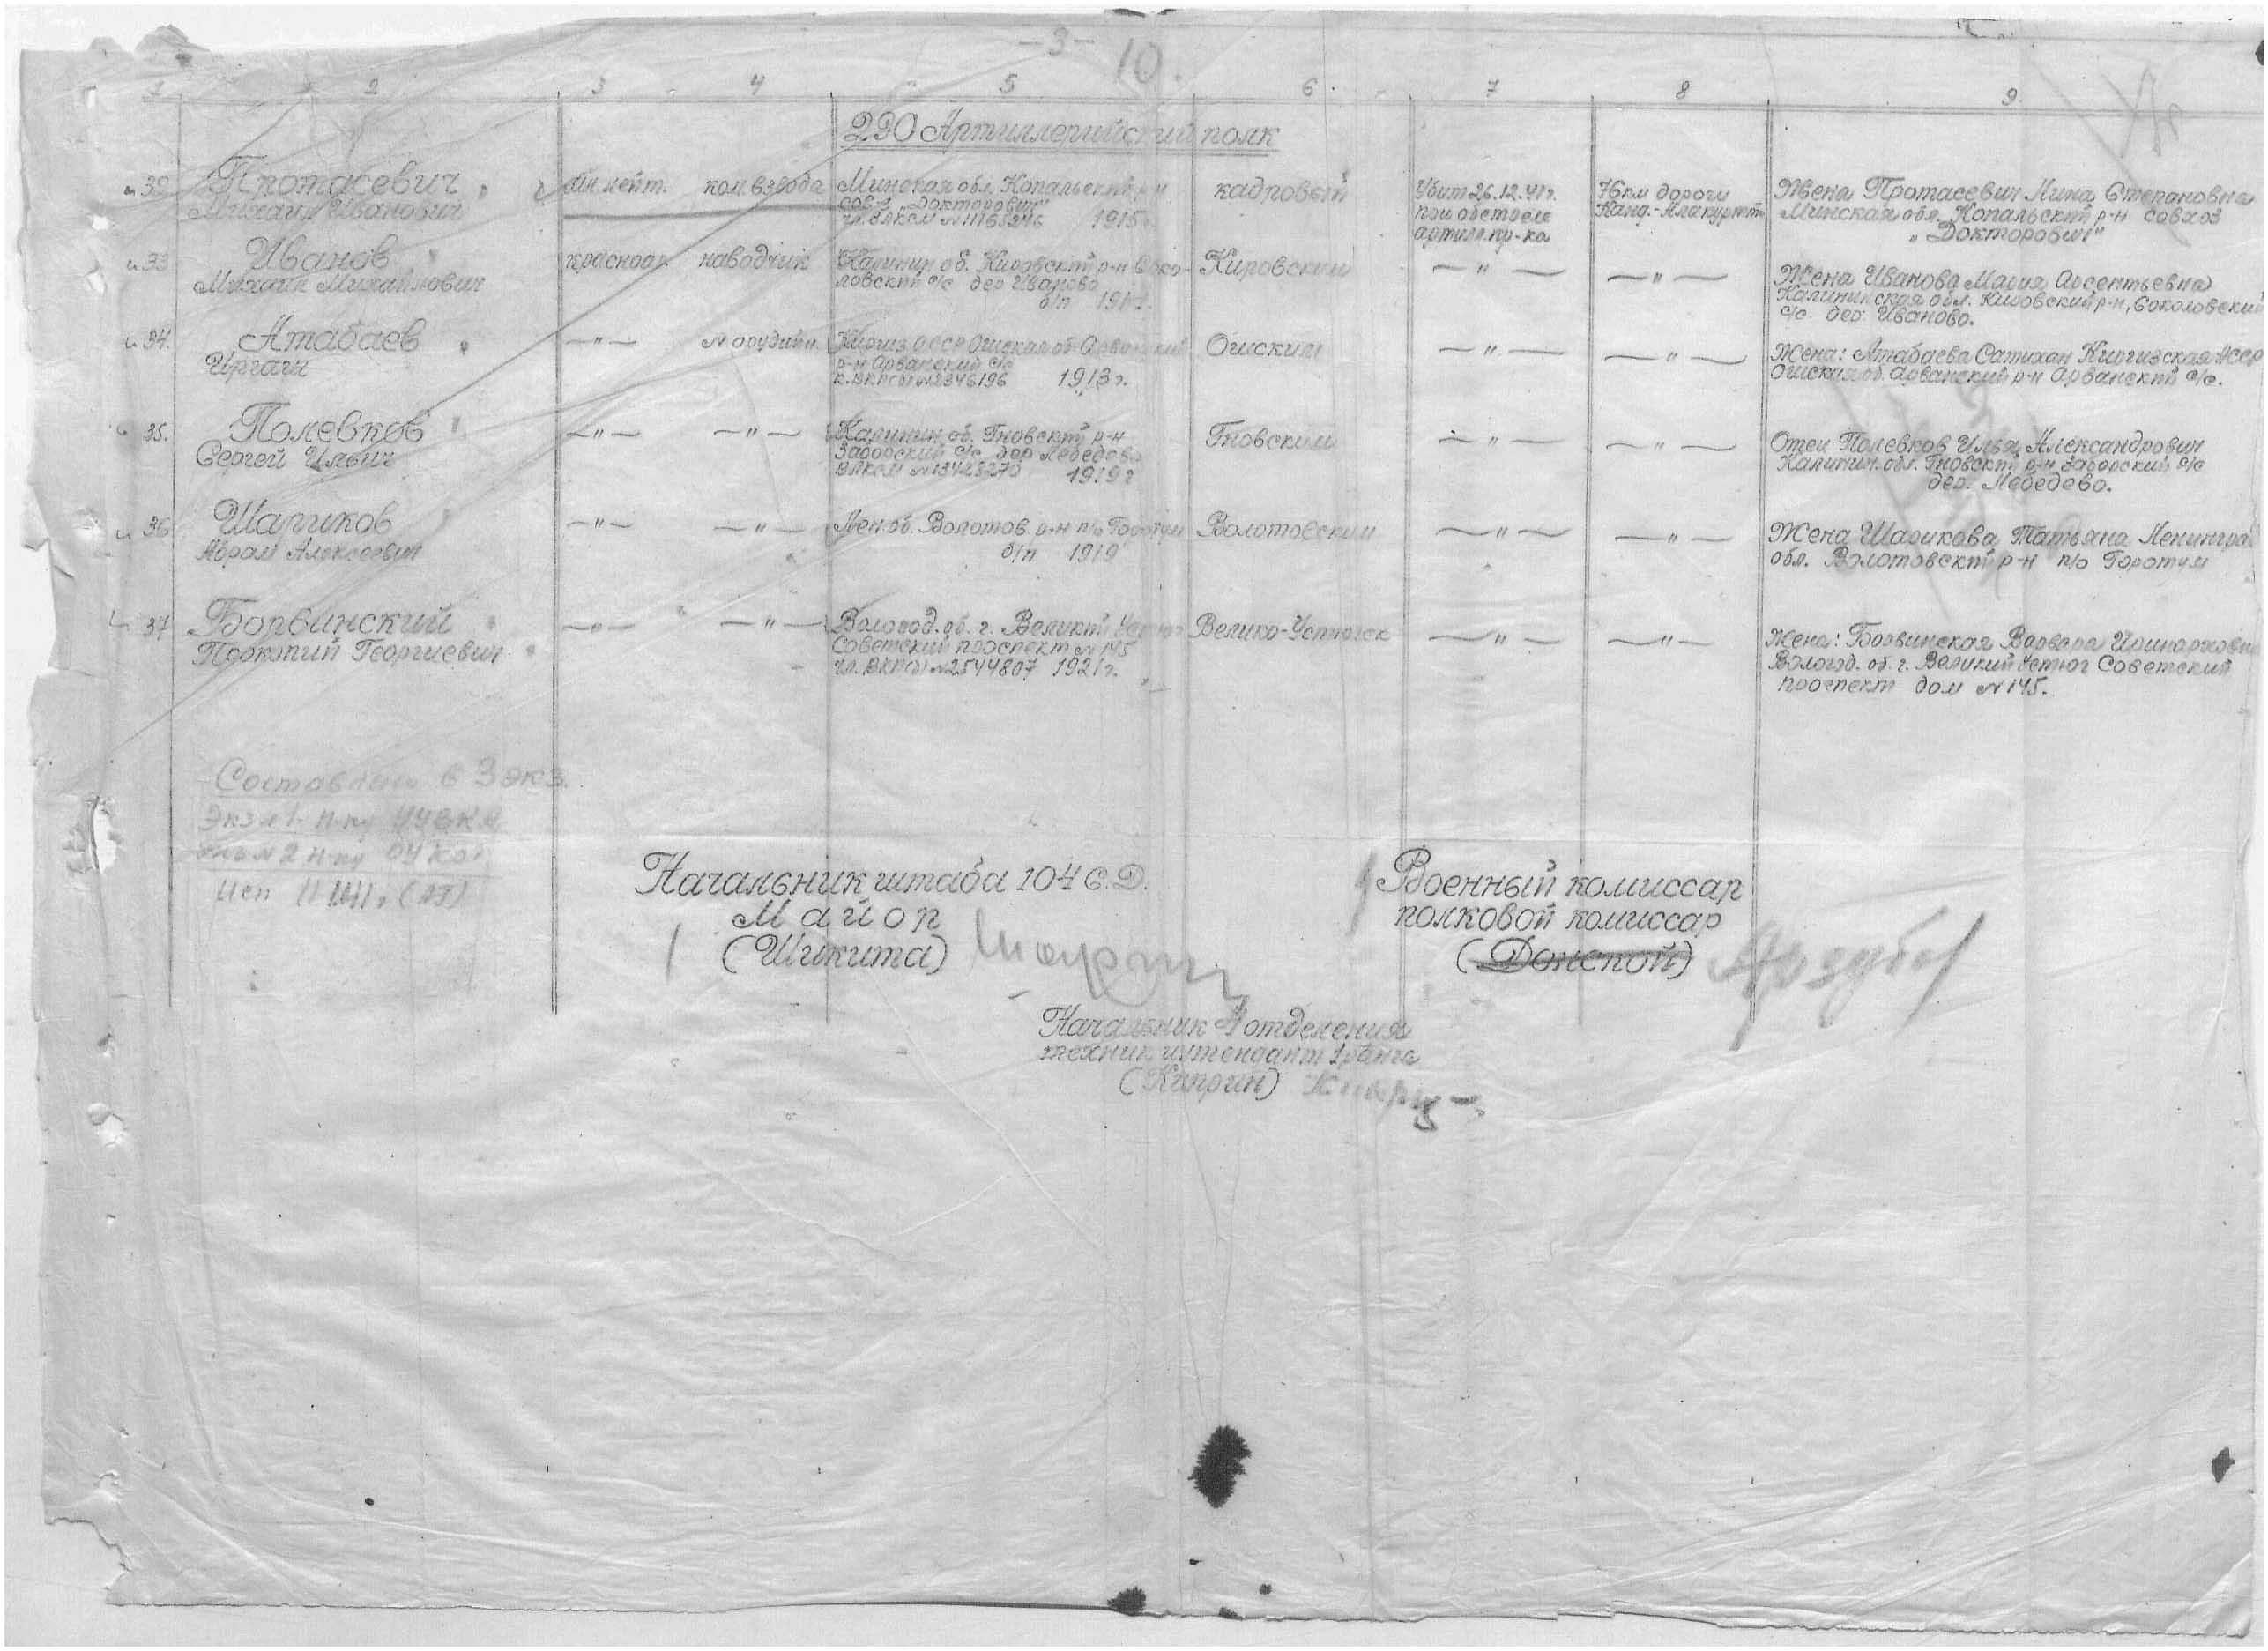 -3-
10.
1 2 3 4 5 6. 7 8 9
290 Артиллерийский полк
32 Протасевич
Михаил Иванович
мл. лейт. ком. взвода
Минская обл. Копальский р-н
совх. „Докторович"
1915
кадровый
Убит 26.12.41г.
при обстреле
артилл. пр-ка
76 км дороги
Канд.-Алакуртти
Жена Протасевич Нина Степановна
Минская обл. Копальский р-н совхоз
„Докторович"
33 Иванов
Михаил Михайлович
красноар. наводчик
Калинин об. Кировский р-н Соко-
ловский с/с дер Иваново
б/п
Кировским
—"— —"—
Жена Иванова Мария Арсентьевна
Калининская обл. Кировский р-н, Соколовский
с/с дер. Иваново.
34. Атабаев
Иргаш
—"— N орудийн.
Киргиз ССР Ошская об
р-н Арванский с/с
к. ВКП(б) N2346196 1913г.
Ошским
—"— —"—
Жена: Атабаева Сатихан Киргизская ССР
Ошская об. Арванский р-н Арванский с/с.
35. Полевков
Сергей Ильич
—"— —"—
Калинин об. Гновский р-н
Заборский с/с дер Лебедево
ВЛКСМ 1919г
Гновским
—"— —"—
Отец Полевков Илья Александрович
Калинин. обл. Гновский р-н Заборский с/с
дер. Лебедево.
36 Шариков
Абрам Алексеевич
—"— —"—
Лен об. Волотов р-н п/о Горотум
б/п 1919
Волотовским
—"— —"—
Жена Шарикова Татьяна Ленингра
обл. Волотовский р-н п/о Горотум
37 Борвинский
Прокопий Георгиевич
—"— —"—
Вологод. об. г. Великий Устюг
Советский проспект N 145
чл. ВКП(б) N2544807 1921г.
Велико-Устюгск
—"— —"—
Жена: Борвинская Варвара Иринарховна
Вологод. об. г. Великий Устюг Советский
проспект дом N 145.
Составлено в 3 экз.
Экз N1- н-ку
N2 н-ку
Исп
Начальник штаба 104 С.Д.
Майор
(Шикита)
Военный комиссар
полковой комиссар
(Донской)
Начальник 4 отделения
техник интендант 1 ранга
(Киприн)